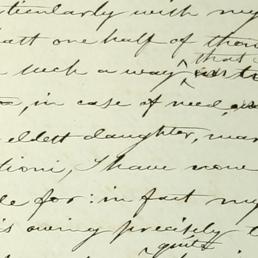 ticularly with my
att one half of thou
that i
such a way
, in case of need,
eldest daughter, mar
tioni, I have now
le for: in fact my
is owing precisely t
quite